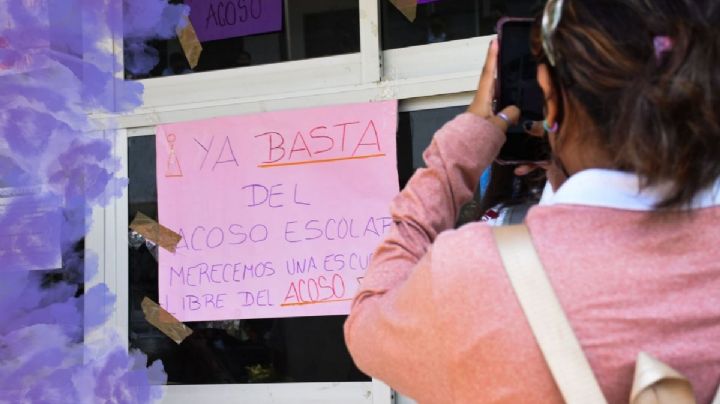 ACOSO
¡YA BASTA
DEL
ACOSO ESCOLAR
MERECEMOS UNA ESCU
LIBRE DEL ACOSO